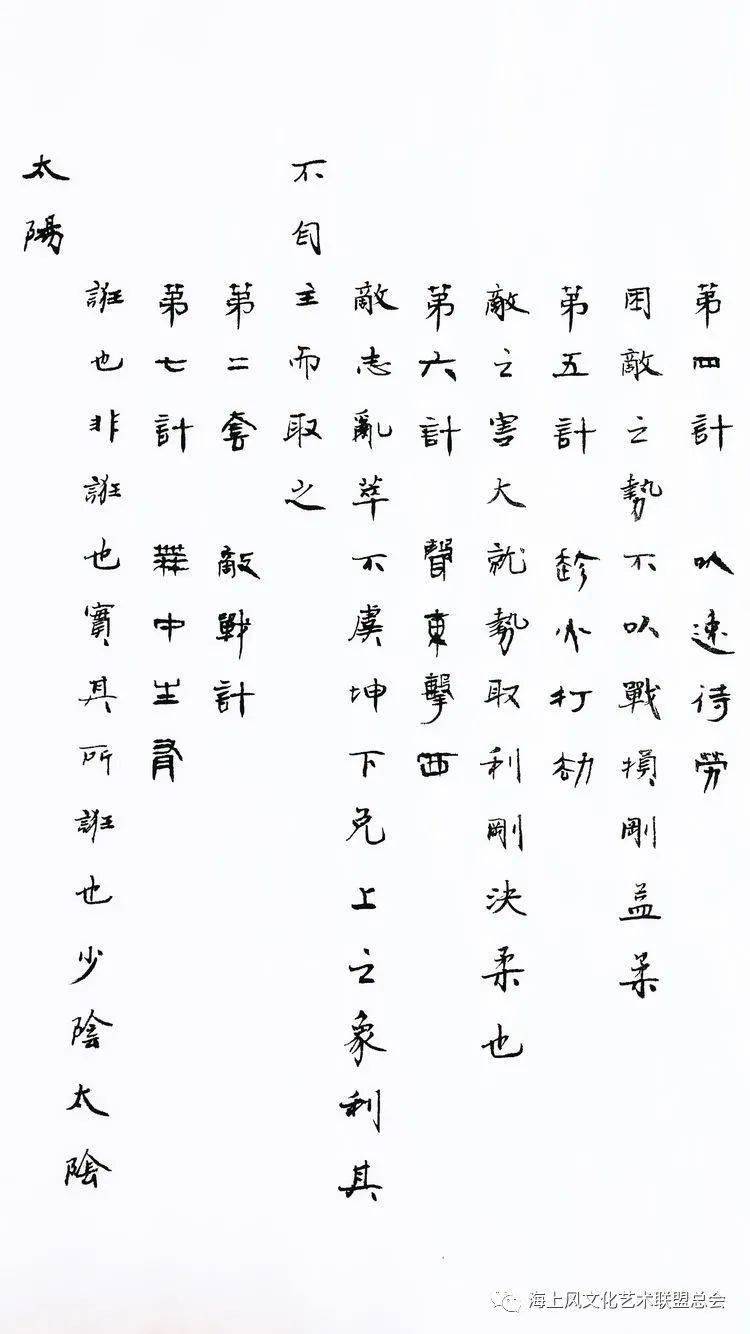 第四計 以速待勞
困敵之勢不以戰損剛益柔
第五計 趁火打劫
敵之害大就勢取利剛決柔也
第六計 聲東擊西
敵志亂萃不虞坤下兌上之象利其
不自主而取之
第二套 敵戰計
第七計 無中生有
誑也非誑也實其所誑也少陰太陰
太陽
海上风文化艺术联盟总会